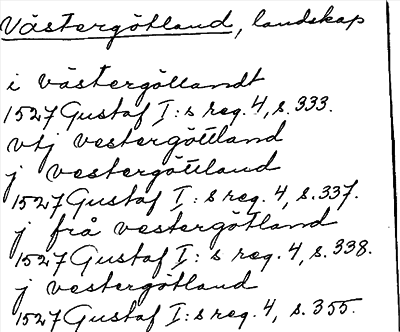 Västergötland, landskap
i västergöllandt
1527 Gustaf I:s reg. 4, s. 333.
vtj vestergöttland
j vestergöttland
1527 Gustaf I:s reg. 4, s. 337.
j frå vestergötland
1527 Gustaf I:s reg. 4, s. 338.
j vestergötland
1527 Gustaf I:s reg. 4, s. 355.